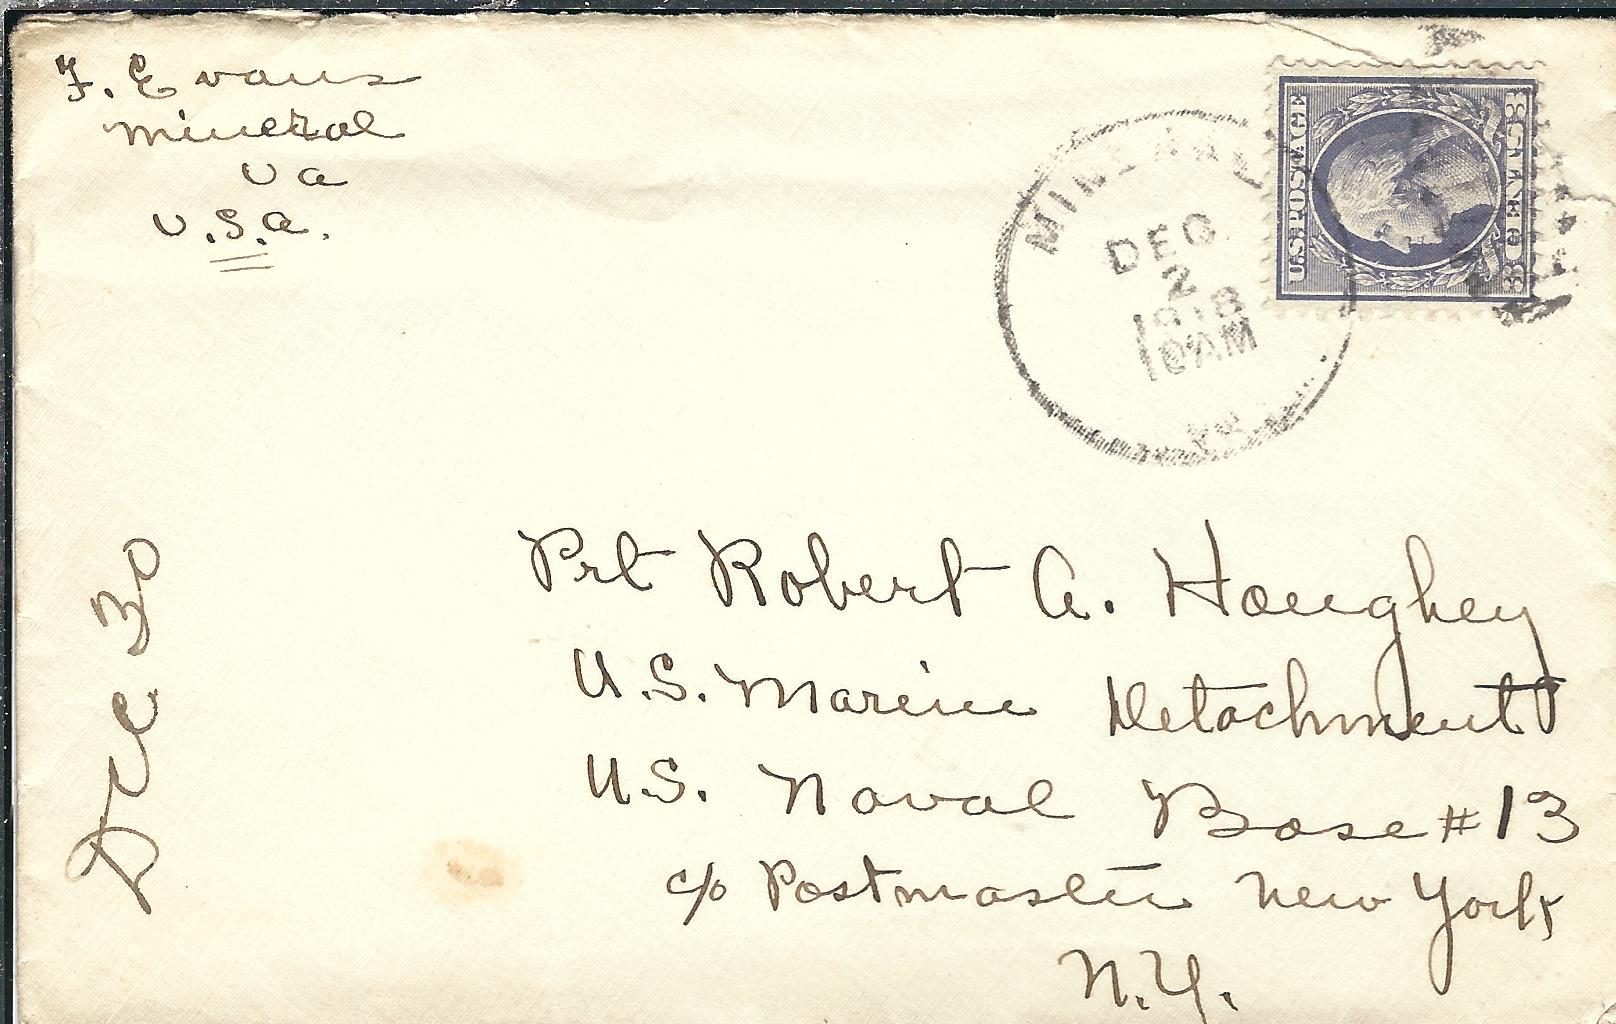 F. Evans
Mineral
Va
U.S.A.
MINERAL
DEC
2
1918
10AM
VA.
U.S. POSTAGE
3 CENTS 3
Pvt Robert A. Houghey
U.S. Marine Detachment
U.S. Naval Base #13
c/o Postmaster New York
N.Y.
Dec 30